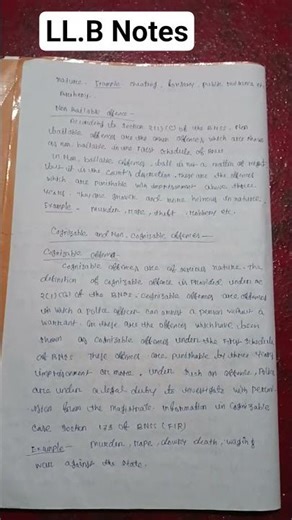 LL.B Notes
nature. Example cheating, bribery, public nuisance etc.
Non bailable offence -
According to section 2(1)(c) of the BNSS, Non
bailable offences are the offences which are shown
as non bailable in the first schedule of BNSS
In Non bailable offences, bail is not a matter of right
but it is the court's discretion, these are the offences
which are punishable with imprisonment above three
years. They are more heinous in nature.
Example - murder, rape, theft, robbery etc.
Cognizable and Non Cognizable offences -
Cognizable offence -
Cognizable offences are of serious nature. The
definition of cognizable offence is provided under sec
2(1)(g) of the BNSS. Cognizable offences are offences
in which a police officer can arrest a person without a
warrant. These are the offences which have been
shown as cognizable offences under the first schedule
of BNSS. These offences are punishable by three years
imprisonment or more, under such an offence, police
are under a legal duty to investigate with permi-
ssion from the magistrate. Information in cognizable
case section 173 of BNSS (FIR)
Example - murder, rape, dowry death, waging
war against the state.